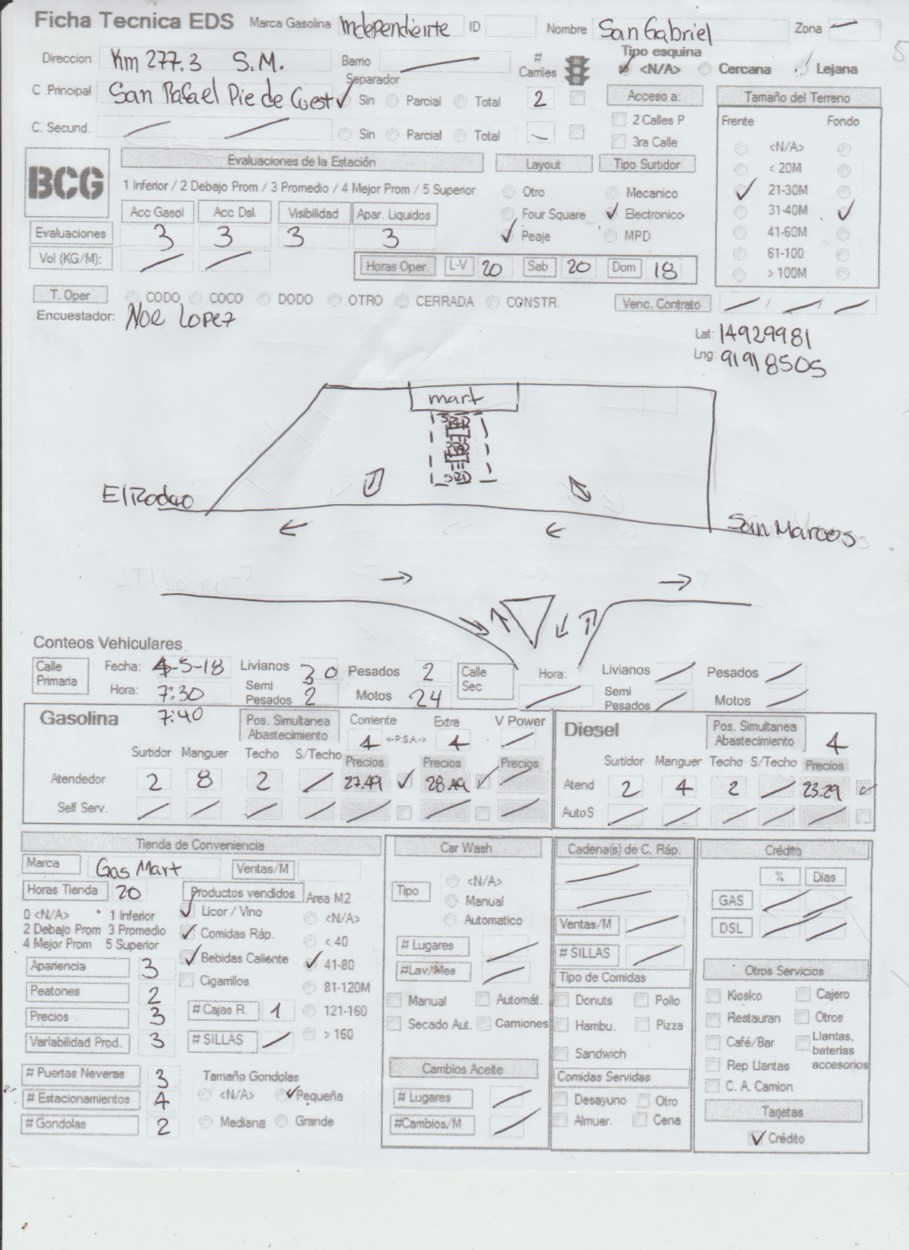 Ficha Tecnica EDS Marca Gasolina Independiente ID Nombre San Gabriel Zona —
Direccion Km 277.3 S.M. Barrio — # Carriles Tipo esquina
✓ <N/A> Cercana Lejana
C .Principal San Rafael Pie de Cuest Separador ✓ Sin Parcial Total 2 Acceso a: Tamaño del Terreno
C. Secund. — — Sin Parcial Total — 2 Calles P Frente Fondo
3ra Calle <N/A>
BCG Evaluaciones de la Estación Layout Tipo Surtidor < 20M
1 Inferior / 2 Debajo Prom / 3 Promedio / 4 Mejor Prom / 5 Superior Otro Mecanico ✓ 21-30M
Acc Gasol Acc Dsl Visibilidad Apar. Liquidos Four Square ✓ Electronico 31-40M ✓
Evaluaciones 3 3 3 3 ✓ Peaje MPD 41-60M
Vol (KG/M): — — Horas Oper. L-V 20 Sab 20 Dom 18 61-100
> 100M
T. Oper CODO COCO DODO OTRO CERRADA CONSTR. Venc. Contrato — / — / —
Encuestador: Noe Lopez
Lat: 14929981
Lng: 91918505
mart
El Rodeo
San Marcos
Conteos Vehiculares
Calle Primaria Fecha: 4-5-18 Livianos 30 Pesados 2 Calle Sec Hora: — Livianos — Pesados —
Hora: 7:30 Semi Pesados 2 Motos 24 Semi Pesados — Motos —
7:40
Gasolina Pos. Simultanea Abastecimiento Corriente 4 <-P.S.A-> Extra 4 V Power — Diesel Pos. Simultanea Abastecimiento 4
Surtidor Manguer Techo S/Techo Precios Precios Precios Surtidor Manguer Techo S/Techo Precios
Atendedor 2 8 2 — 27.49 ✓ 28.49 ✓ — Atend 2 4 2 — 23.29 ✓
Self Serv. — — — — — — — Auto S — — — — —
Tienda de Conveniencia Car Wash Cadena(s) de C. Ráp. Crédito
Marca Gas Mart Ventas/M
Horas Tienda 20 Productos vendidos Area M2
0 <N/A> * 1 Inferior
2 Debajo Prom 3 Promedio
4 Mejor Prom 5 Superior
✓ Licor / Vino
✓ Comidas Ráp.
✓ Bebidas Caliente
Cigarrillos
<N/A>
< 40
✓ 41-80
81-120M
121-160
> 160
Apariencia 3
Peatones 2
Precios 3
Variabilidad Prod. 3
# Cajas R. 1
# SILLAS —
# Puertas Neveras 3
# Estacionamientos 4
# Gondolas 2
Tamaño Gondolas
<N/A> ✓ Pequeña
Mediana Grande
Tipo <N/A>
Manual
Automatico
# Lugares —
#Lav/Mes —
Manual Automát.
Secado Aut. Camiones
Cambios Aceite
# Lugares —
#Cambios/M —
Ventas/M —
# SILLAS —
Tipo de Comidas
Donuts Pollo
Hambu. Pizza
Sandwich
Comidas Servidas
Desayuno Otro
Almuer. Cena
% Dias
GAS — —
DSL — —
Otros Servicios
Kiosko Cajero
Restauran Otros
Café/Bar Llantas, baterias accesorios
Rep Llantas
C. A. Camion
Tarjetas
✓ Crédito